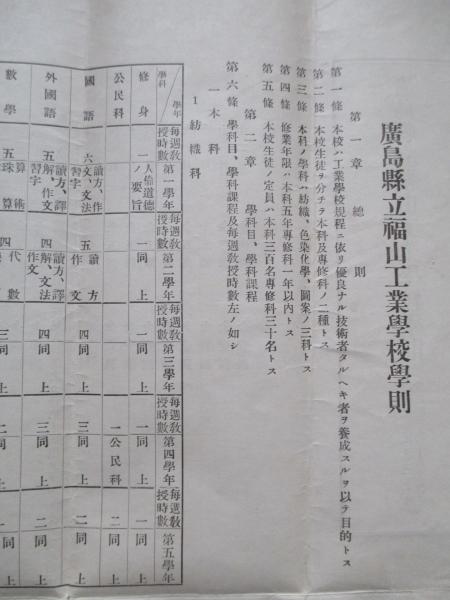 廣島縣立福山工業學校學則
第一章 總則
第一條 本校ハ工業學校規程ニ依リ優良ナル技術者タルヘキ者ヲ養成スルヲ以テ目的トス
第二條 本校生徒ヲ分チテ本科及專修科ノ二種トス
第三條 本科ノ學科ハ紡織、色染化學、圖案ノ三科トス
第四條 修業年限ハ本科五年專修科一年以內トス
第五條 本校生徒ノ定員ハ本科三百名專修科三十名トス
第二章 學科目、學科課程
第六條 學科目、學科課程及每週敎授時數左ノ如シ
一本科
1紡織科
學科/學年 每週敎授時數 第一學年 每週敎授時數 第二學年 每週敎授時數 第三學年 每週敎授時數 第四學年 每週敎授時數 第五學年
修身 一 人倫道德ノ要旨 一 同上 一 同上 一 同上 一 同上
公民科 一 公民科 一 同上
國語 六 讀方、作文、文法習字 五 讀方作文 四 同上 三 同上 二 同上
外國語 五 讀方、譯解、作文習字 四 讀方、譯解、文法作文 四 同上 三 同上 二 同上
數學 五 算術珠算 四 代數 三 同上 二 同上 一 同上